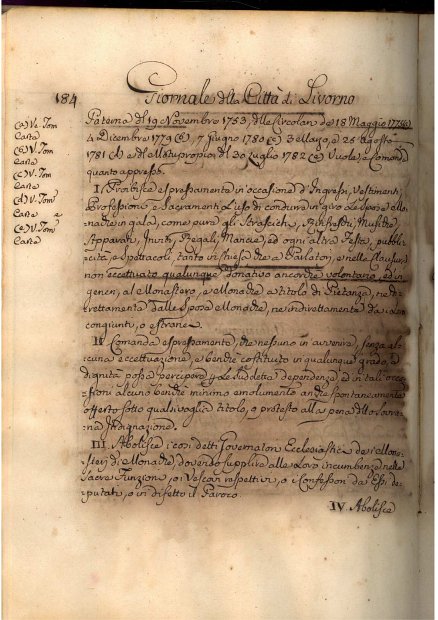 184
Giornale della Città di Livorno
(a) Ve. Tom
Carta
(b) V. Tom
Carta
(c) V. Tom
Carta
(d) V. Tom
Carta e
(e) V. Tom
Carta
Paterna del 19 Novembre 1753, delle Circolari de 18 Maggio
4 Dicembre 1774 7 Giugno 1780 3 Marzo, e 25 Agosto
1781 (d) e del Motuproprio del 30 Luglio 1782 (e) Vuole, e Comanda
quanto appresso.
I. Proibisce espressamente in occasione d'Ingressi, Vestimenti,
Professioni e Sacramenti l'uso di condurre in giro le spose alle
in gala, come pure gli Strascichi, Rinfreschi, Musiche,
Apparati, Inviti, Regali, Mancie, ed ogni altra Festa, pubbli-
cità, e Spettacoli tanto in Chiesa che a Parlatori, e nelle Clausure
non eccettuato qualunque donativo ancorchè volontario, ed in
genere, al Monastero, e Monache a titolo di Pietanza, nè di-
rettamente dalle Spose Monache, nè indirettamente da i loro
congiunti, o estranei.
II. Comanda espressamente, che nessuno in avvenire, senza al-
cuna eccettuazione, e benchè costituito in qualunque grado, e
dignità possa percipere per le suddette dipendenze, ed in tal' occa-
sioni alcuno benchè minimo emolumento anche spontaneamente
offerto sotto qualsivoglia titolo, o pretesto alla pena della Sovra-
na Indignazione.
III. Abolisce i così detti Governatori Ecclesiastici de i Mona-
sterj di Monache, dovendo supplire alle Loro incumbenze nelle
Sacre Funzioni, o i Vescovi respettivi, o i Confessori da Essi de-
putati, o in difetto il Paroco.
IV. Abolisce